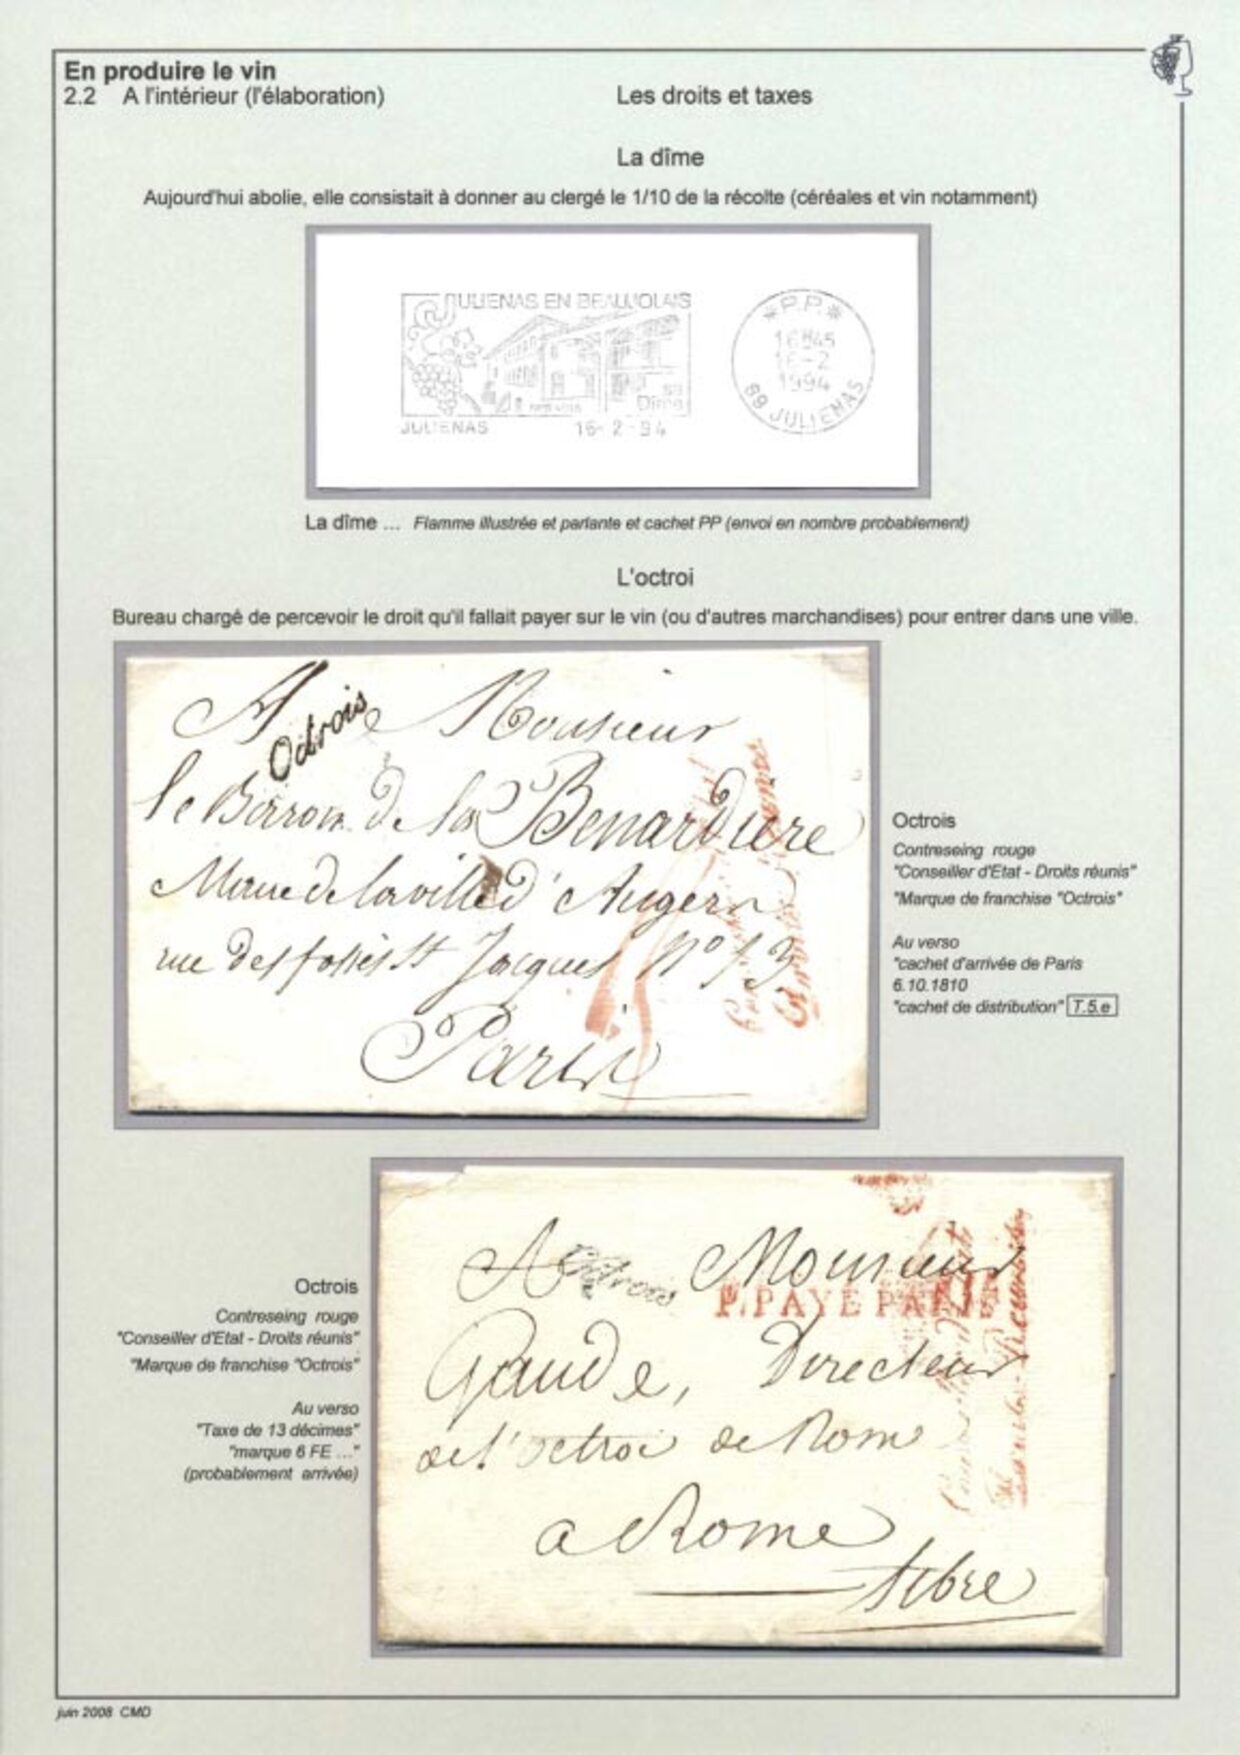 En produire le vin
2.2 A l'intérieur (l'élaboration)
Les droits et taxes
La dîme
Aujourd'hui abolie, elle consistait à donner au clergé le 1/10 de la récolte (céréales et vin notamment)
JULIENAS EN BEAUJOLAIS
sa
Dîme
JULIENAS 16-2-94
*P.P.*
16H45
16-2
1994
69 JULIENAS
La dîme ... Flamme illustrée et parlante et cachet PP (envoi en nombre probablement)
L'octroi
Bureau chargé de percevoir le droit qu'il fallait payer sur le vin (ou d'autres marchandises) pour entrer dans une ville.
Octrois
A Monsieur
le Baron de la Benardiere
Maire de la ville d'Angers
rue des fossés St Jacques N° 13
Paris
Octrois
Contreseing rouge
"Conseiller d'Etat - Droits réunis"
"Marque de franchise "Octrois"
Au verso
"cachet d'arrivée de Paris
6.10.1810
"cachet de distribution" T.5.e
A Octrois Monsieur
P.PAYE PARIS
Gaude, Directeur
de l'octroi de Rome
a Rome
tibre
Octrois
Contreseing rouge
"Conseiller d'Etat - Droits réunis"
"Marque de franchise "Octrois"
Au verso
"Taxe de 13 décimes"
"marque 6 FE ..."
(probablement arrivée)
juin 2008 CMD